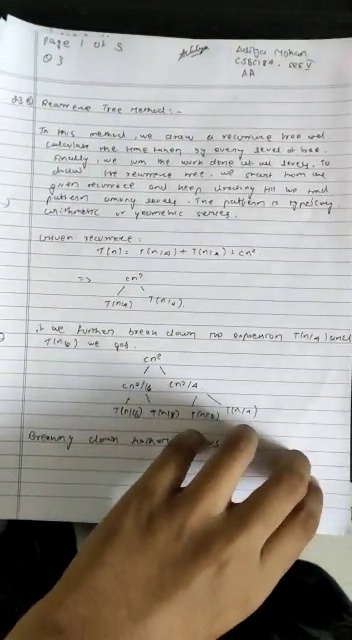 Page 1 of 5
Q 3
Aditya Mohan
CSBC184, sec V
AA
Recurrence Tree Method:-
In this method, we draw a recurrence tree and
calculate the time taken by every level of tree.
Finally, we sum the work done at all levels. To
draw the recurrence tree, we start from the
given recurrence and keep drawing till we find
pattern among levels. The pattern is typically
arithmetic or geometric series.
Given recurrence:
T(n) = T(n/4) + T(n/2) + cn²
=> cn²
/ \
T(n/4) T(n/2)
if we further break down the expression T(n/4) and
T(n/2) we get.
cn²
/ \
cn²/16 cn²/4
/ \ / \
T(n/16) T(n/8) T(n/8) T(n/4)
Breaking down further